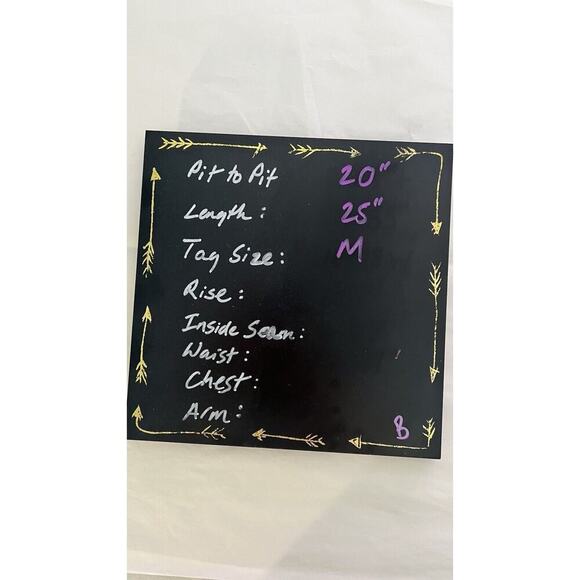 Pit to Pit 20"
Length: 25"
Tag Size: M
Rise:
Inside Seam:
Waist:
Chest:
Arm:
B